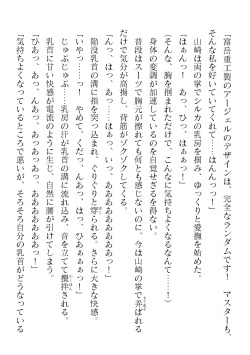 「富岳重工製のアーシェルのデザインは、完全なランダムです！　マスターも、
そんな私を好いていてくれて……はんんっっ！」
山崎は両の掌でシルカの乳房を掴み、ゆっくりと愛撫を始めた。
「はぁんっ！　あっ、ひあっ！」
身体の変調が加速しているのを自覚せざるを得ない。
「そんな、胸を掴まれただけで、こんなに気持ちよくなるなんて……！
普段はスーツで胸元が擦れても何とも感じないのに、今は山崎の掌で弄ばれる
だけで気分が高揚し、背筋がゾクゾクしてくる。
「んっ、はっ、あっ……はっ、あああああっ！」
陥没乳首の溝に指を突っ込まれ、ぐりぐりと穿られる。さらに大きな快感。
「いやっ……っ！　やめて、くだっ、んあっ、は、ひあぁぁぁっ！」
じゅぷじゅぷ……乳房の汗が乳首の溝に流れ込み、音を立てて攪拌される。
乳首に甘い快感が電流のように生じ、自然に腰が引けてしまう。
「ひあっ、あっ、んあっ、あっあっあっ、あああああああっ！」
「気持ちよくなっているところで悪いが、そろそろ自分の乳首がどうなっている